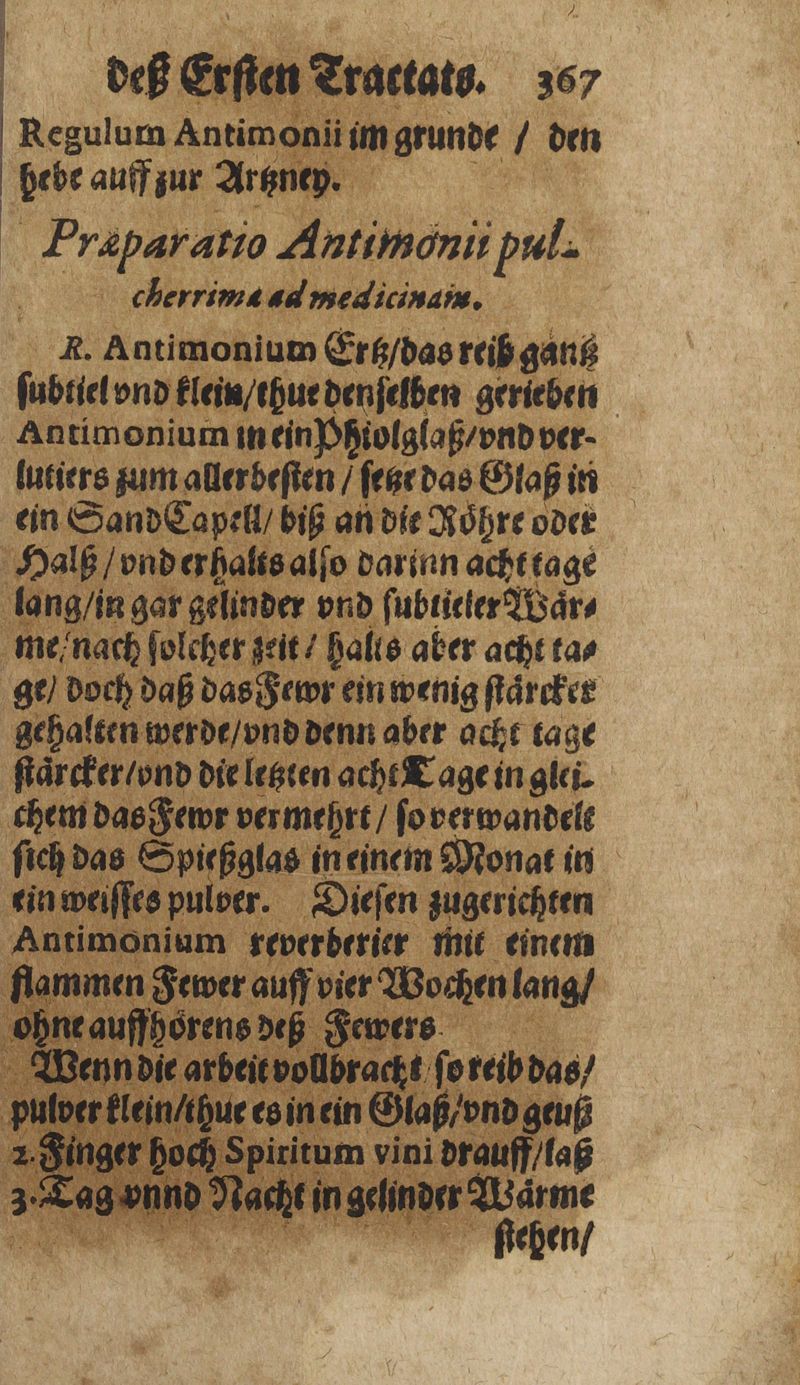 deß Ersten Tractats. 367
Regulum Antimonii im grunde / den
hebe auff zur Artzney.
Præparatio Antimonii pul-
cherrima ad medicinam.
R. Antimonium Ertz/das reib gantz
subtiel vnd klein/thue denselben gerieben
Antimonium in ein Phiolglaß/vnd ver-
lutiers zum allerbesten / setze das Glaß in
ein SandCapell/ biß an die Röhre oder
Halß / vnd erhalts also darinn acht tage
lang/in gar gelinder vnd subtieler Wär-
me/nach solcher zeit / halts aber acht ta-
ge/ doch daß das Fewr ein wenig stärcker
gehalten werde/vnd denn aber acht tage
stärcker/vnd die letzten acht Tage in glei-
chem das Fewr vermehrt / so verwandelt
sich das Spießglas in einem Monat in
ein weisses pulver. Diesen zugerichten
Antimonium reverberier mit einem
flammen Fewer auff vier Wochen lang/
ohne auffhörens deß Fewers
Wenn die arbeit vollbracht so reib das/
pulver klein/thue es in ein Glaß/vnd geuß
2. Finger hoch Spiritum vini drauff/laß
3. Tag vnnd Nacht in gelinder Wärme
stehen/